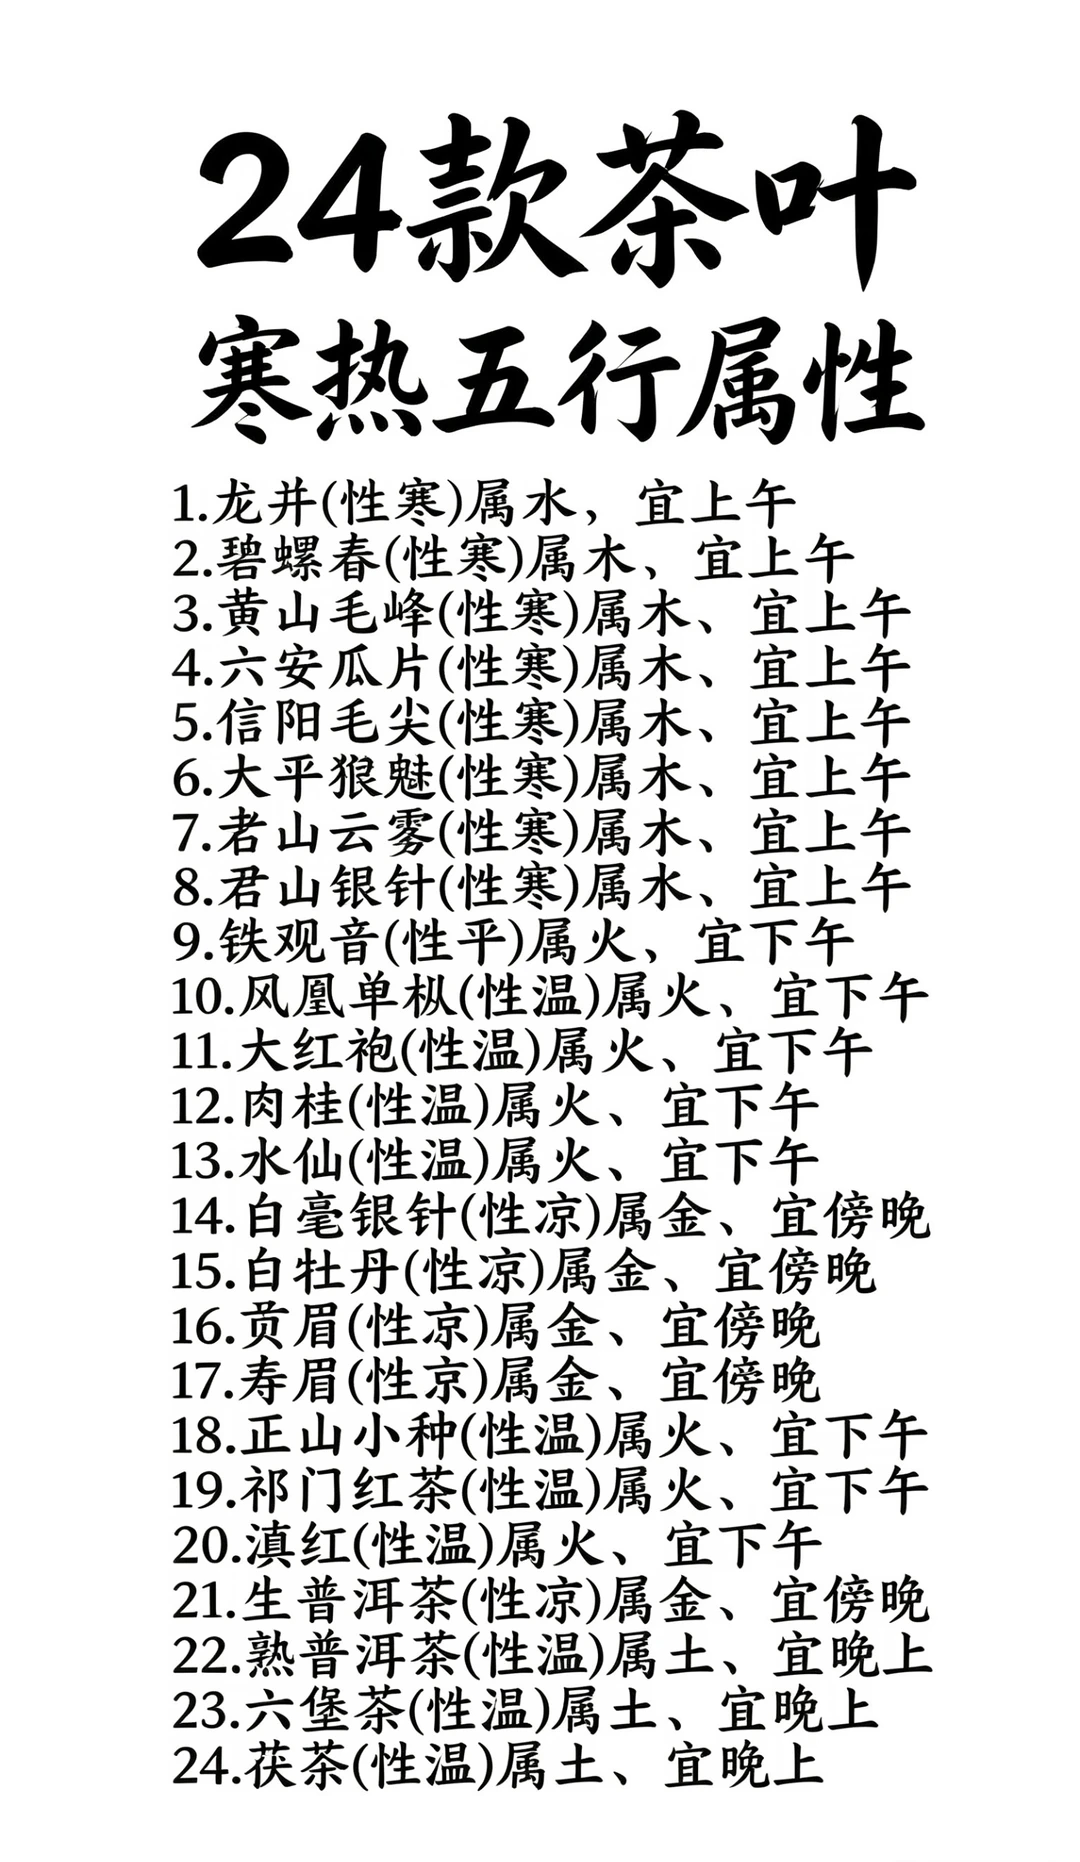 24款茶叶
寒热五行属性
1.龙井(性寒)属水，宜上午
2.碧螺春(性寒)属木、宜上午
3.黄山毛峰(性寒)属木、宜上午
4.六安瓜片(性寒)属木、宜上午
5.信阳毛尖(性寒)属木、宜上午
6.大平猴魁(性寒)属木、宜上午
7.老山云雾(性寒)属木、宜上午
8.君山银针(性寒)属水、宜上午
9.铁观音(性平)属火、宜下午
10.风凰单枞(性温)属火、宜下午
11.大红袍(性温)属火、宜下午
12.肉桂(性温)属火、宜下午
13.水仙(性温)属火、宜下午
14.白毫银针(性凉)属金、宜傍晚
15.白牡丹(性凉)属金、宜傍晚
16.贡眉(性凉)属金、宜傍晚
17.寿眉(性京)属金、宜傍晚
18.正山小种(性温)属火、宜下午
19.祁门红茶(性温)属火、宜下午
20.滇红(性温)属火、宜下午
21.生普洱茶(性凉)属金、宜傍晚
22.熟普洱茶(性温)属土、宜晚上
23.六堡茶(性温)属土、宜晚上
24.茯茶(性温)属土、宜晚上